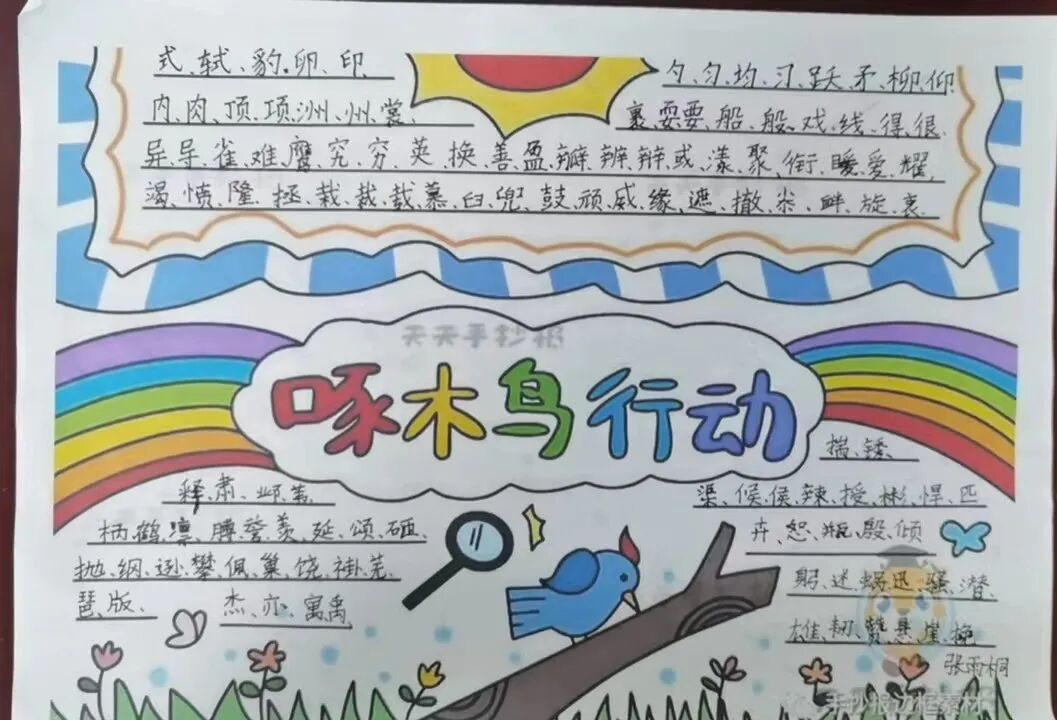 式、轼、豹、卵、印
内、肉、顶、项、洲、州、裳、
异、导、雀、难、鹰、究、穷、英、换、善、盈、瓣、辨、辩、或、漾、聚、衔、暖、爱、耀、
渴、愤、隆、拯、栽、裁、载、慕、臼、兜、鼓、顽、威、缘、遮、撤、米、畔、旋、衷、
勺、匀、均、习、跃、矛、柳、仰
裹、耍、要、船、般、戏、线、得、很、
天天手抄报
啄木鸟行动
释、肃、邺、苇、
柄、鹤、凛、腾、誉、羡、延、颂、砸、
抛、纲、逊、攀、佩、巢、饶、褂、芜、
琶、版、
杰、亦、寓、禹
揣、矮、
渠、候、侯、辣、授、彬、悍、匹
卉、恕、瓶、殷、倾
躬、迷、蜗、迅、骚、潜
雄、韧、赞、悬、崖、挽
张雨桐
手抄报边框素材